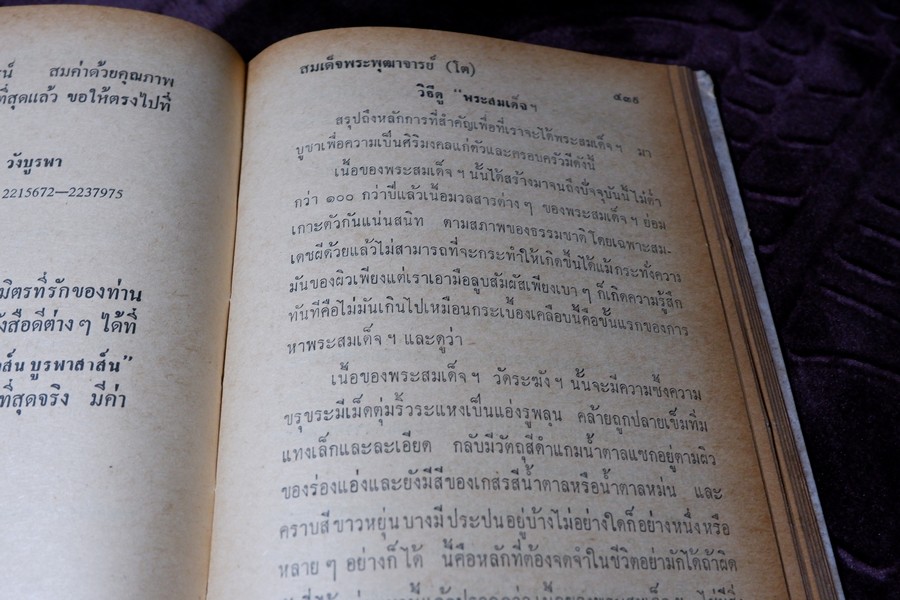 น์ สมค่าด้วยคุณภาพ
ที่สุดแล้ว ขอให้ตรงไปที่
วังบูรพา
2215672—2237975
มิตรที่รักของท่าน
งสือดีต่าง ๆ ได้ที่
ส์น บูรพาสาส์น”
ที่สุดจริง มีค่า
สมเด็จพระพุฒาจารย์ (โต)
๔๓๕
วิธีดู “พระสมเด็จฯ
สรุปถึงหลักการที่สำคัญเพื่อที่เราจะได้พระสมเด็จฯ มา
บูชาเพื่อความเป็นศิริมงคลแก่ตัวและครอบครัวมีดังนี้
เนื้อของพระสมเด็จ ฯ นั้นได้สร้างมาจนถึงปัจจุบันนี้ไม่ต่ำ
กว่า ๑๐๐ กว่าปีแล้วเนื้อมวลสารต่าง ๆ ของพระสมเด็จ ฯ ย่อม
เกาะตัวกันแน่นสนิท ตามสภาพของธรรมชาติ โดยเฉพาะสม-
เดชผีด้วยแล้วไม่สามารถที่จะกระทำให้เกิดขึ้นได้แม้กระทั่งความ
มันของผิวเพียงแต่เราเอามือลูบสัมผัสเพียงเบา ๆ ก็เกิดความรู้สึก
ทันทีคือไม่มันเกินไปเหมือนกระเบื้องเคลือบนี้คือขั้นแรกของการ
หาพระสมเด็จ ฯ และดูว่า
เนื้อของพระสมเด็จ ฯ วัดระฆัง ฯ นั้นจะมีความซึ้งความ
ขรุขระมีเม็ดตุ่มริ้วระแหงเป็นแอ่งรูพลุน คล้ายถูกปลายเข็มทิ่ม
แทงเล็กและละเอียด กลับมีวัตถุสีดำแกมน้ำตาลแซกอยู่ตามผิว
ของร่องแอ่งและยังมีสีของเกสรสีน้ำตาลหรือน้ำตาลหม่น และ
คราบสีขาวหยุ่นบางมีประปนอยู่บ้างไม่อย่างใดก็อย่างหนึ่งหรือ
หลาย ๆ อย่างก็ได้ นี้คือหลักที่ต้องจดจำในชีวิตอย่ามักได้ถ้าผิด